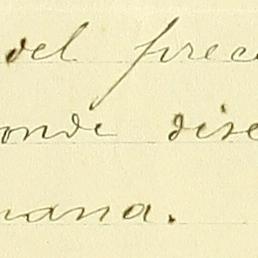 del prec
onde dise
nana.